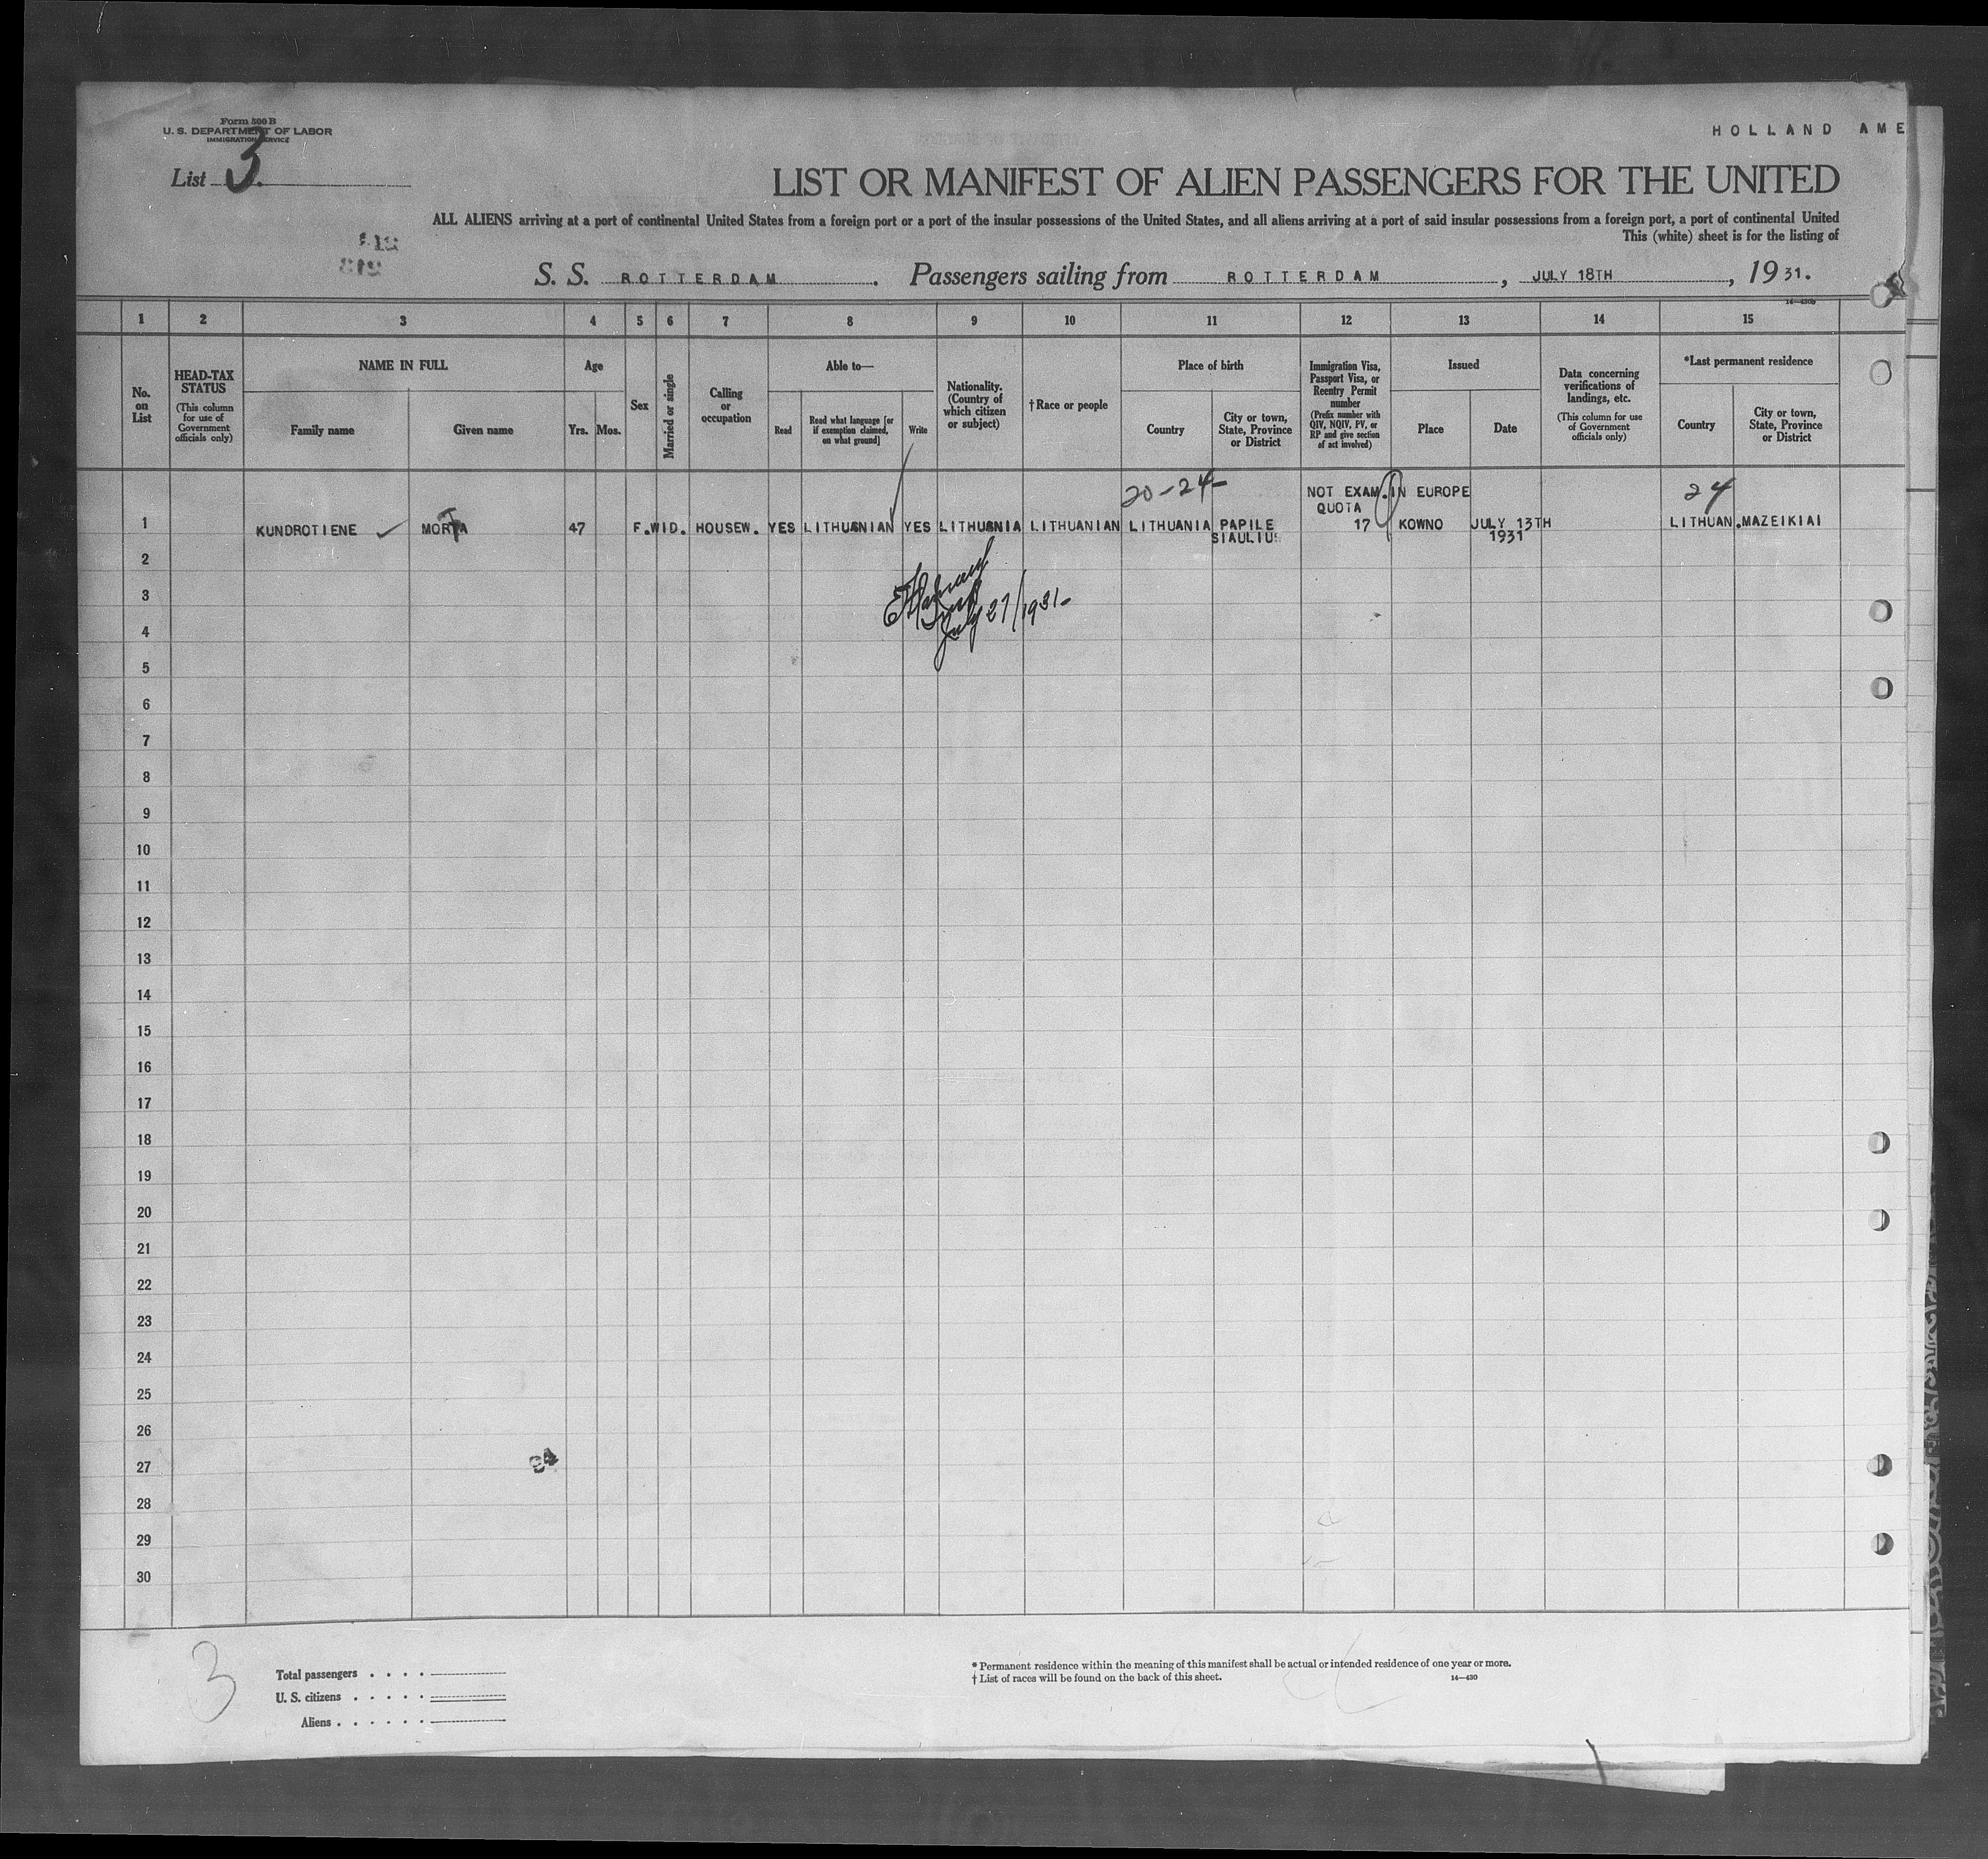 Form 500 B
U. S. DEPARTMENT OF LABOR
IMMIGRATION SERVICE
HOLLAND AME
List 3.
LIST OR MANIFEST OF ALIEN PASSENGERS FOR THE UNITED
ALL ALIENS arriving at a port of continental United States from a foreign port or a port of the insular possessions of the United States, and all aliens arriving at a port of said insular possessions from a foreign port, a port of continental United
This (white) sheet is for the listing of
S. S. ROTTERDAM. Passengers sailing from ROTTERDAM, JULY 18TH, 1931.
14—430b
1 2 3 4 5 6 7 8 9 10 11 12 13 14 15
No. on List
HEAD-TAX STATUS
(This column for use of Government officials only)
NAME IN FULL
Family name
Given name
Age
Yrs. Mos.
Sex
Married or single
Calling or occupation
Able to—
Read
Read what language [or if exemption claimed, on what ground]
Write
Nationality. (Country of which citizen or subject)
†Race or people
Place of birth
Country
City or town, State, Province or District
Immigration Visa, Passport Visa, or Reentry Permit number
(Prefix number with QIV, NQIV, PV, or RP and give section of act involved)
Issued
Place
Date
Data concerning verifications of landings, etc.
(This column for use of Government officials only)
*Last permanent residence
Country
City or town, State, Province or District
20-24- NOT EXAM. IN EUROPE 24
QUOTA
1 KUNDROTIENE MORTA 47 F. WID. HOUSEW. YES LITHUANIAN YES LITHUANIA LITHUANIAN LITHUANIA PAPILE 17 KOWNO JULY 13TH LITHUAN. MAZEIKIAI
SIAULIUS 1931
2
3
July 27/1931-
4
5
6
7
8
9
10
11
12
13
14
15
16
17
18
19
20
21
22
23
24
25
26
27
28
29
30
3
Total passengers . . . .
U. S. citizens . . . . .
Aliens . . . . . .
* Permanent residence within the meaning of this manifest shall be actual or intended residence of one year or more.
† List of races will be found on the back of this sheet. 14—430